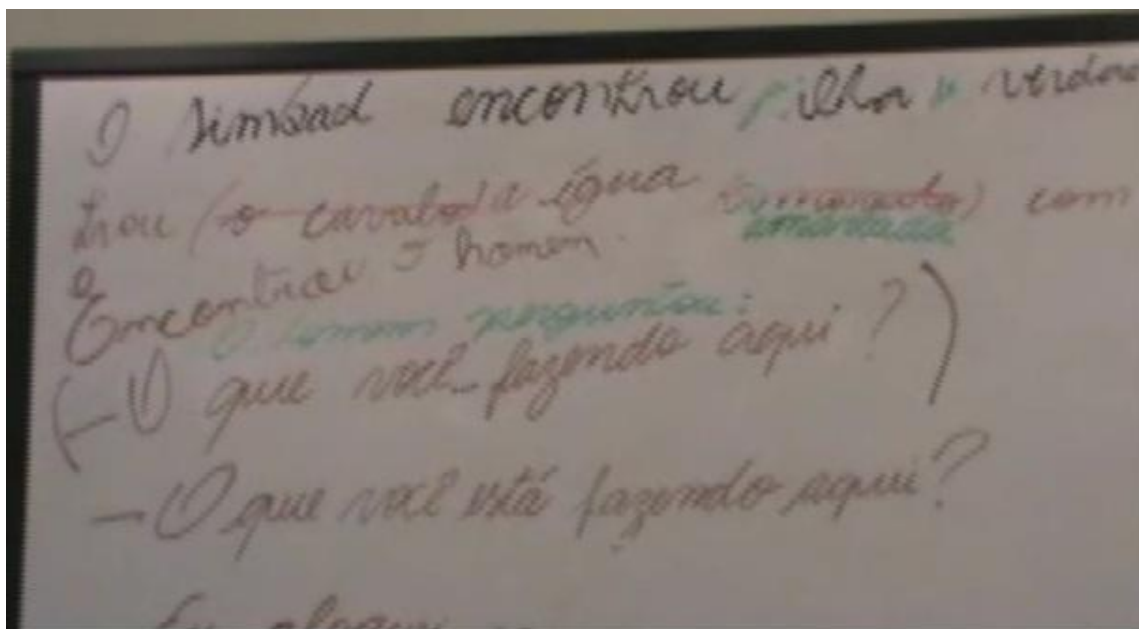 O Simbad encontrou ilha
trou (o cavalo) a égua (amarrado) com
amarrada
e
Encontrou o homem.
O homem perguntou:
(– O que você fazendo aqui?)
– O que você está fazendo aqui?
Eu